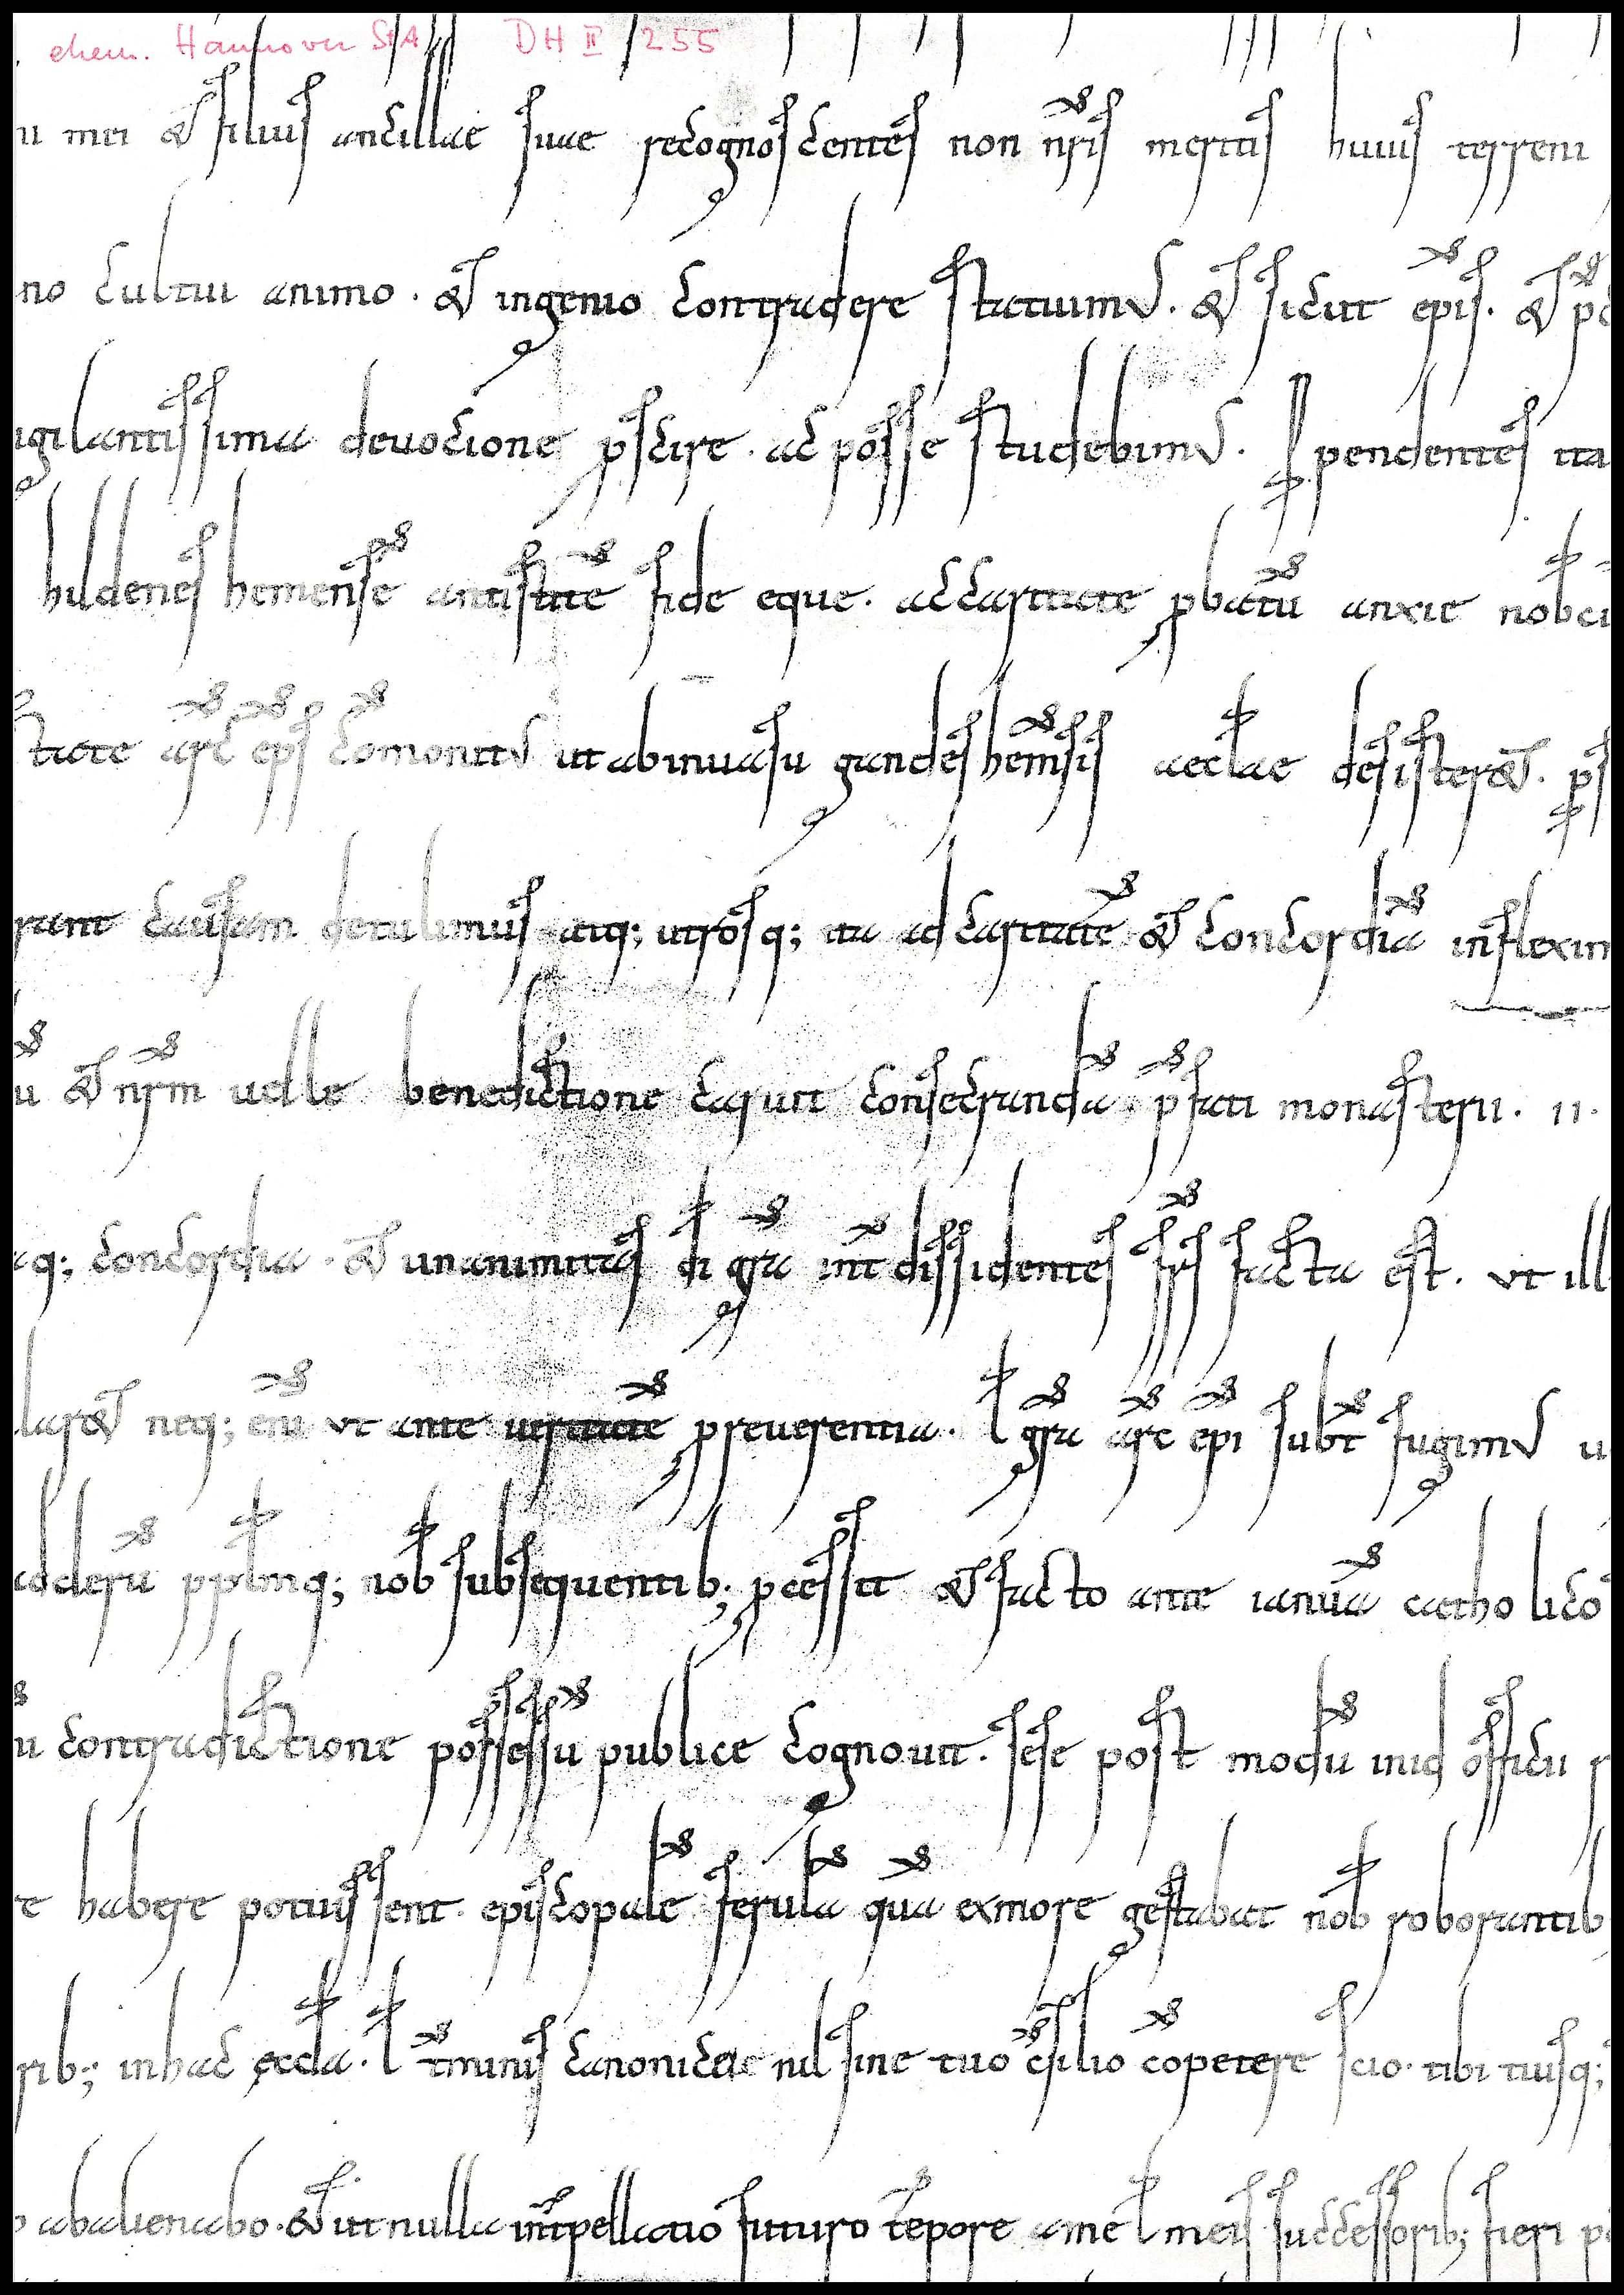 ehem. Hannover StA DH II 255
u mei & filius ancillae suae recognoscentes non nr̄is meritis huius terreni
no cultui animo · & ingenio contradere statuimus · & sicut ep̄is · &
igilantissima devocione p̄scire · ac posse studebimus · pendentes ita
hildeneshemensē antistitē fide eque · ac caritate pbatū anxie nob
tate arc ep̄s comonitus ut ab invasu gandeshemsis aeclae desister& ·
rant causam detulimus atq; utrosq; ita ad caritatē & concordiā inflexim
u & nr̄m velle benedictione caruit consecrandā · p̄fati monasterii · II ·
q; concordia · & unanimitas di gr̄a int̄ dissidentes fr̄s facta est · ut ill
lar& neq; enī ut ante veritatē p reverentia · l gr̄a arc ep̄i subt̄ fugimus u
p̄plmq; nob subsequentib; pcessit & facto ante ianuā catholico
u contradictione possessū publice cognovit · sese post modū iniq officii
te habere potuissent · episcopalē ferulā quā ex more gestabat nob roborantib
rib; in hac ęccla · l t̄minis canonicae nil sine tuo c̄silio cōpetere scio · tibi tuisq;
abalienabo · & ut nulla int̄pellatio futuro tēpore a me l meis successorib; fieri